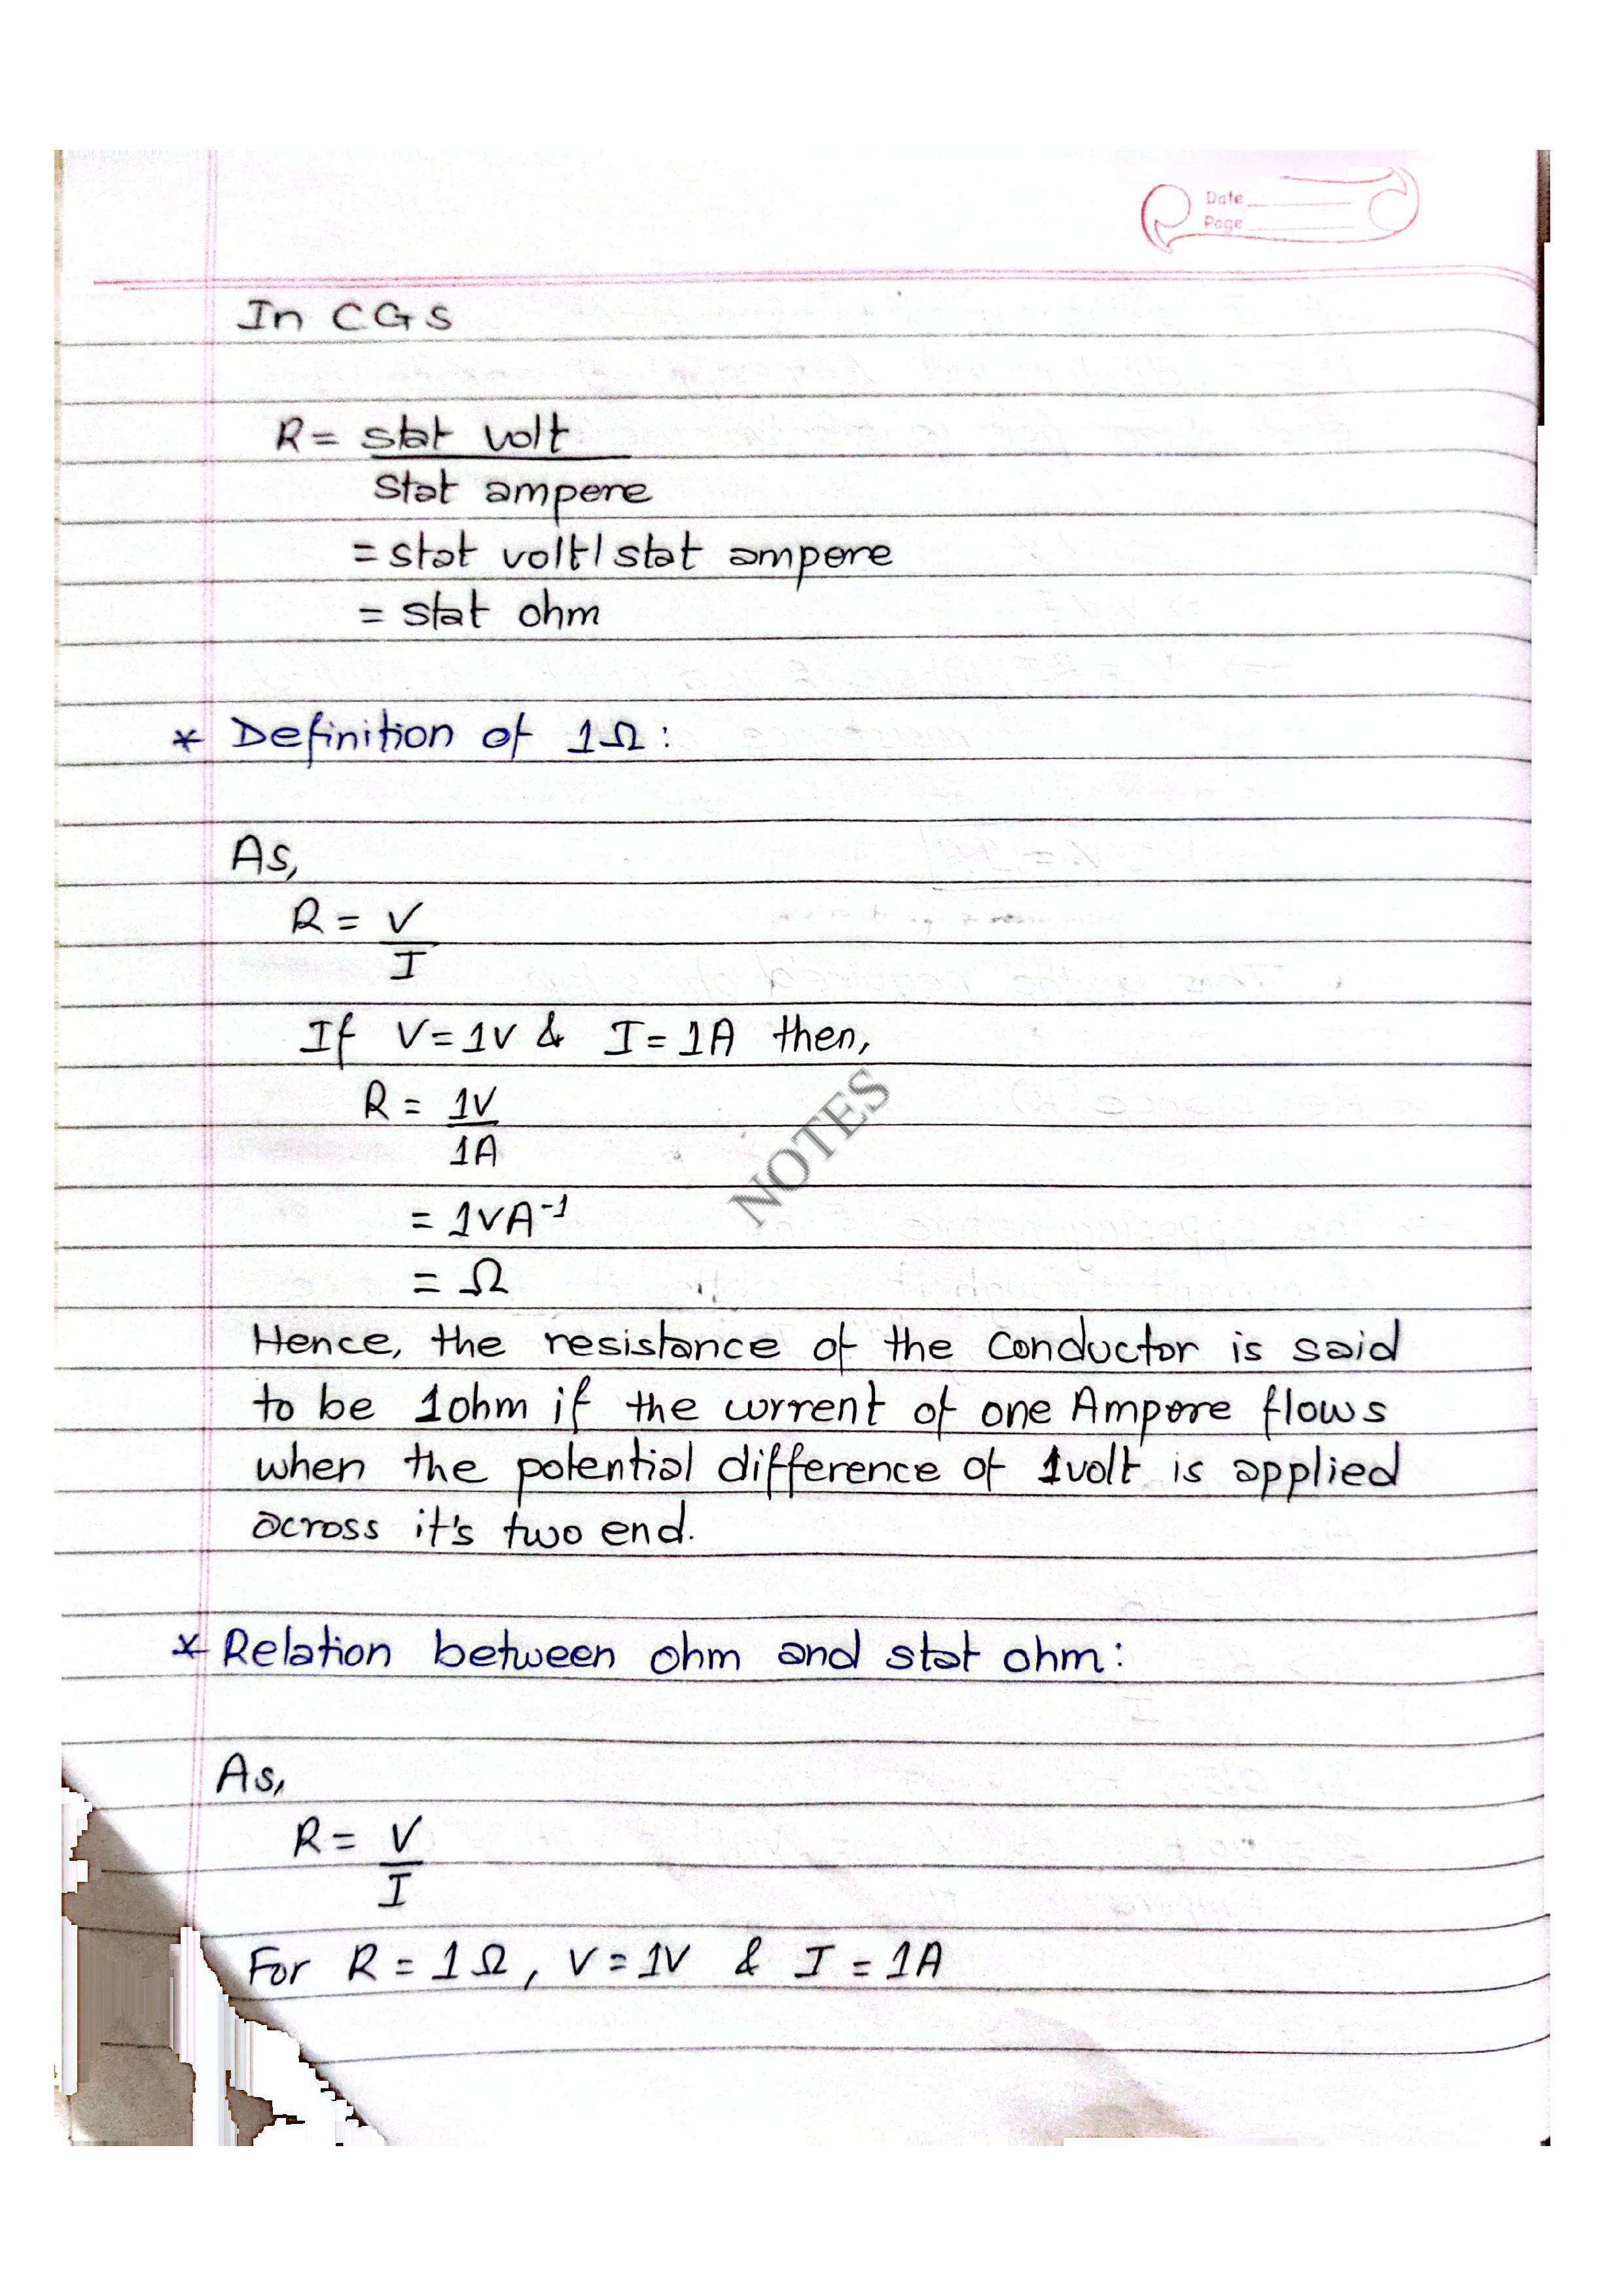 Date
Page
In CGS
R = stat volt
stat ampere
= stat volt/stat ampere
= stat ohm
* Definition of 1Ω:
As,
R = V
I
If V=1V & I=1A then,
R = 1V
1A
= 1VA⁻¹
= Ω
NOTES
Hence, the resistance of the conductor is said
to be 1ohm if the current of one Ampere flows
when the potential difference of 1volt is applied
across it's two end.
* Relation between ohm and stat ohm:
As,
R = V
I
For R = 1Ω, V = 1V & I = 1A